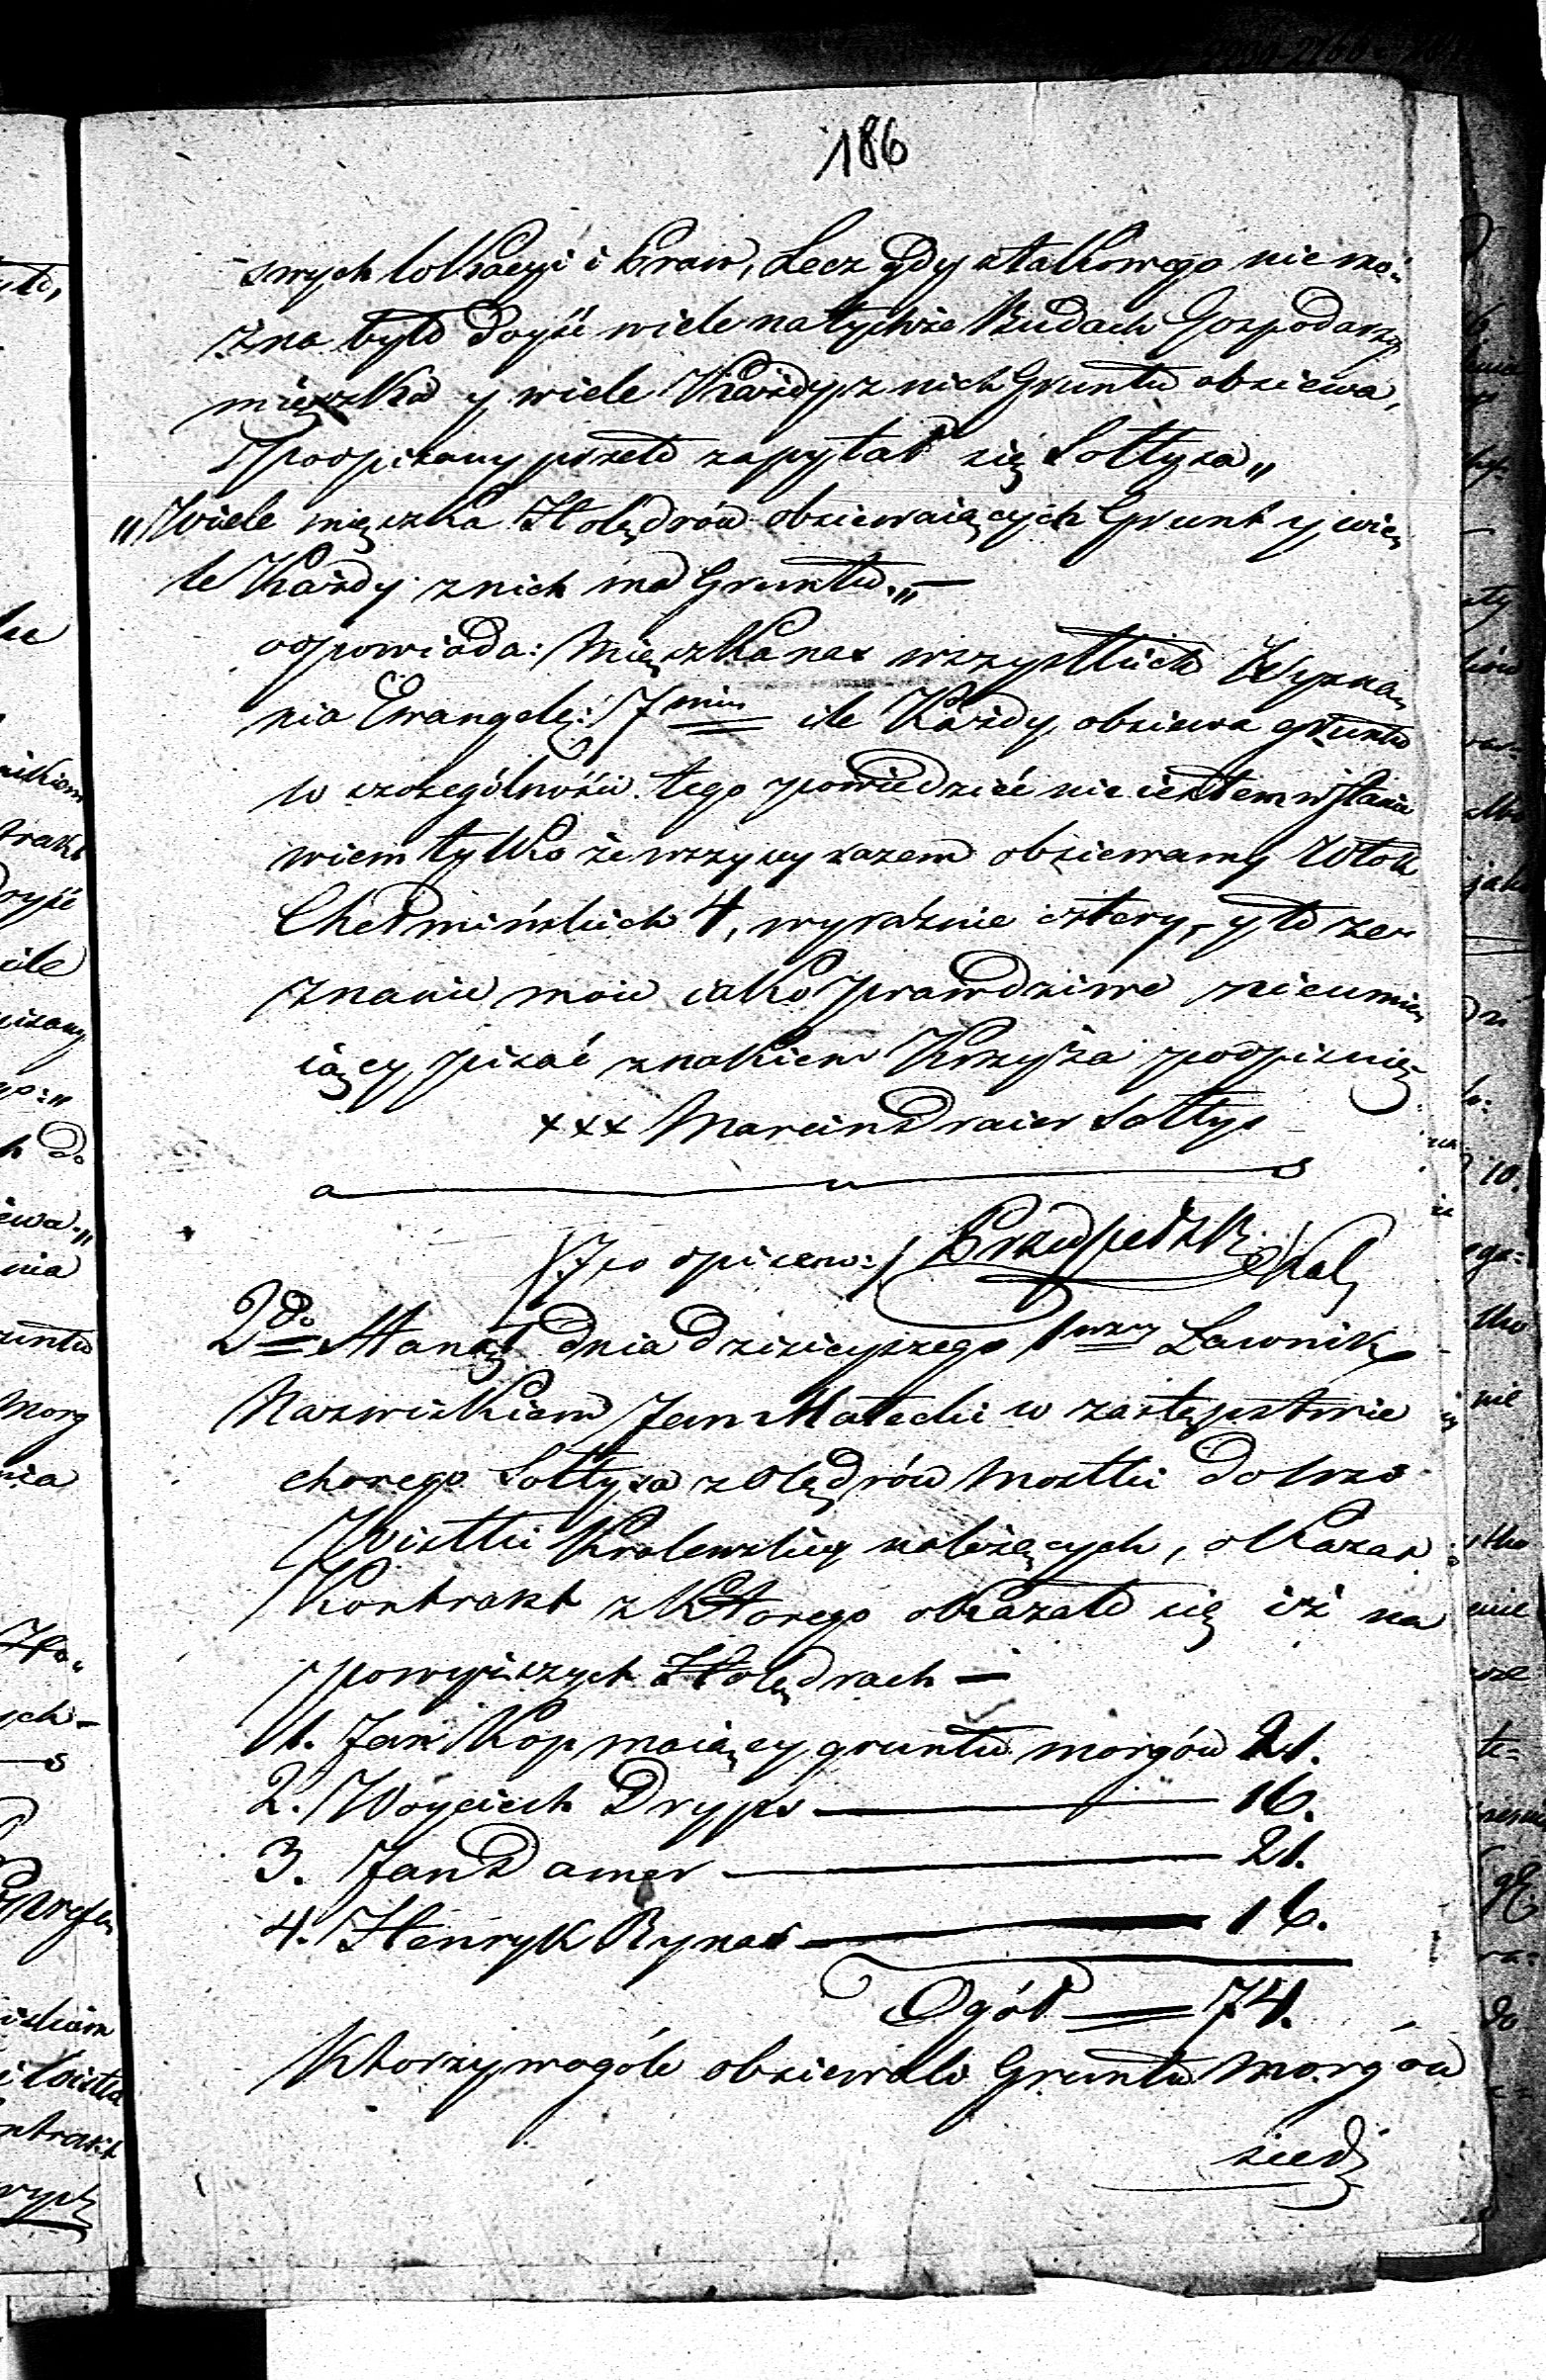 186
swych lokacyi i Praw, Lecz gdy z takowego nie mo„
żna było doyść wiele na tychże Budach Gospodarzy
mięszka y wiele Każdy z nich Gruntu obsiewa,
Podpisany przeto zapytał się Sołtysa„
„Wiele mięszka Holędrów obsiewaiących Grunt y wie„
le Każdy z nich ma Gruntu.„ —
odpowiada: Mięszka nas wszystkich Wyzna„
nia Ewangel: 7miu ile Każdy obsiewa gruntu
w szczególności tego powiedzieć nie iestem w stanie
wiem tylko że wszyscy razem obsiewamy Włok
Chełmińskich 4, wyraźnie cztery, y to ze„
znanie moie iako prawdziwe nieumie„
iący pisać znakiem Krzyża podpisuię
xxx Marcin Draier Sołtys
2do Stanął dnia dzisieyszego 1wszy Ławnik
Nazwiskiem Jan Małecki w zastępstwie
chorego Sołtysa z Olędrów Mostki do Wsi
Wistki Krolewskiey należących, okazał
Kontrakt z Którego okazało się iż na
powyższych Holędrach —
1. Jan Kop maiący gruntu morgów 21.
2. Woyciech Dryps — 16.
3. Jan Damer — 21.
4. Henryk Rynas — 16.
Ogół — 74.
Którzy wogóle obsiewali Gruntu Morgów
sied